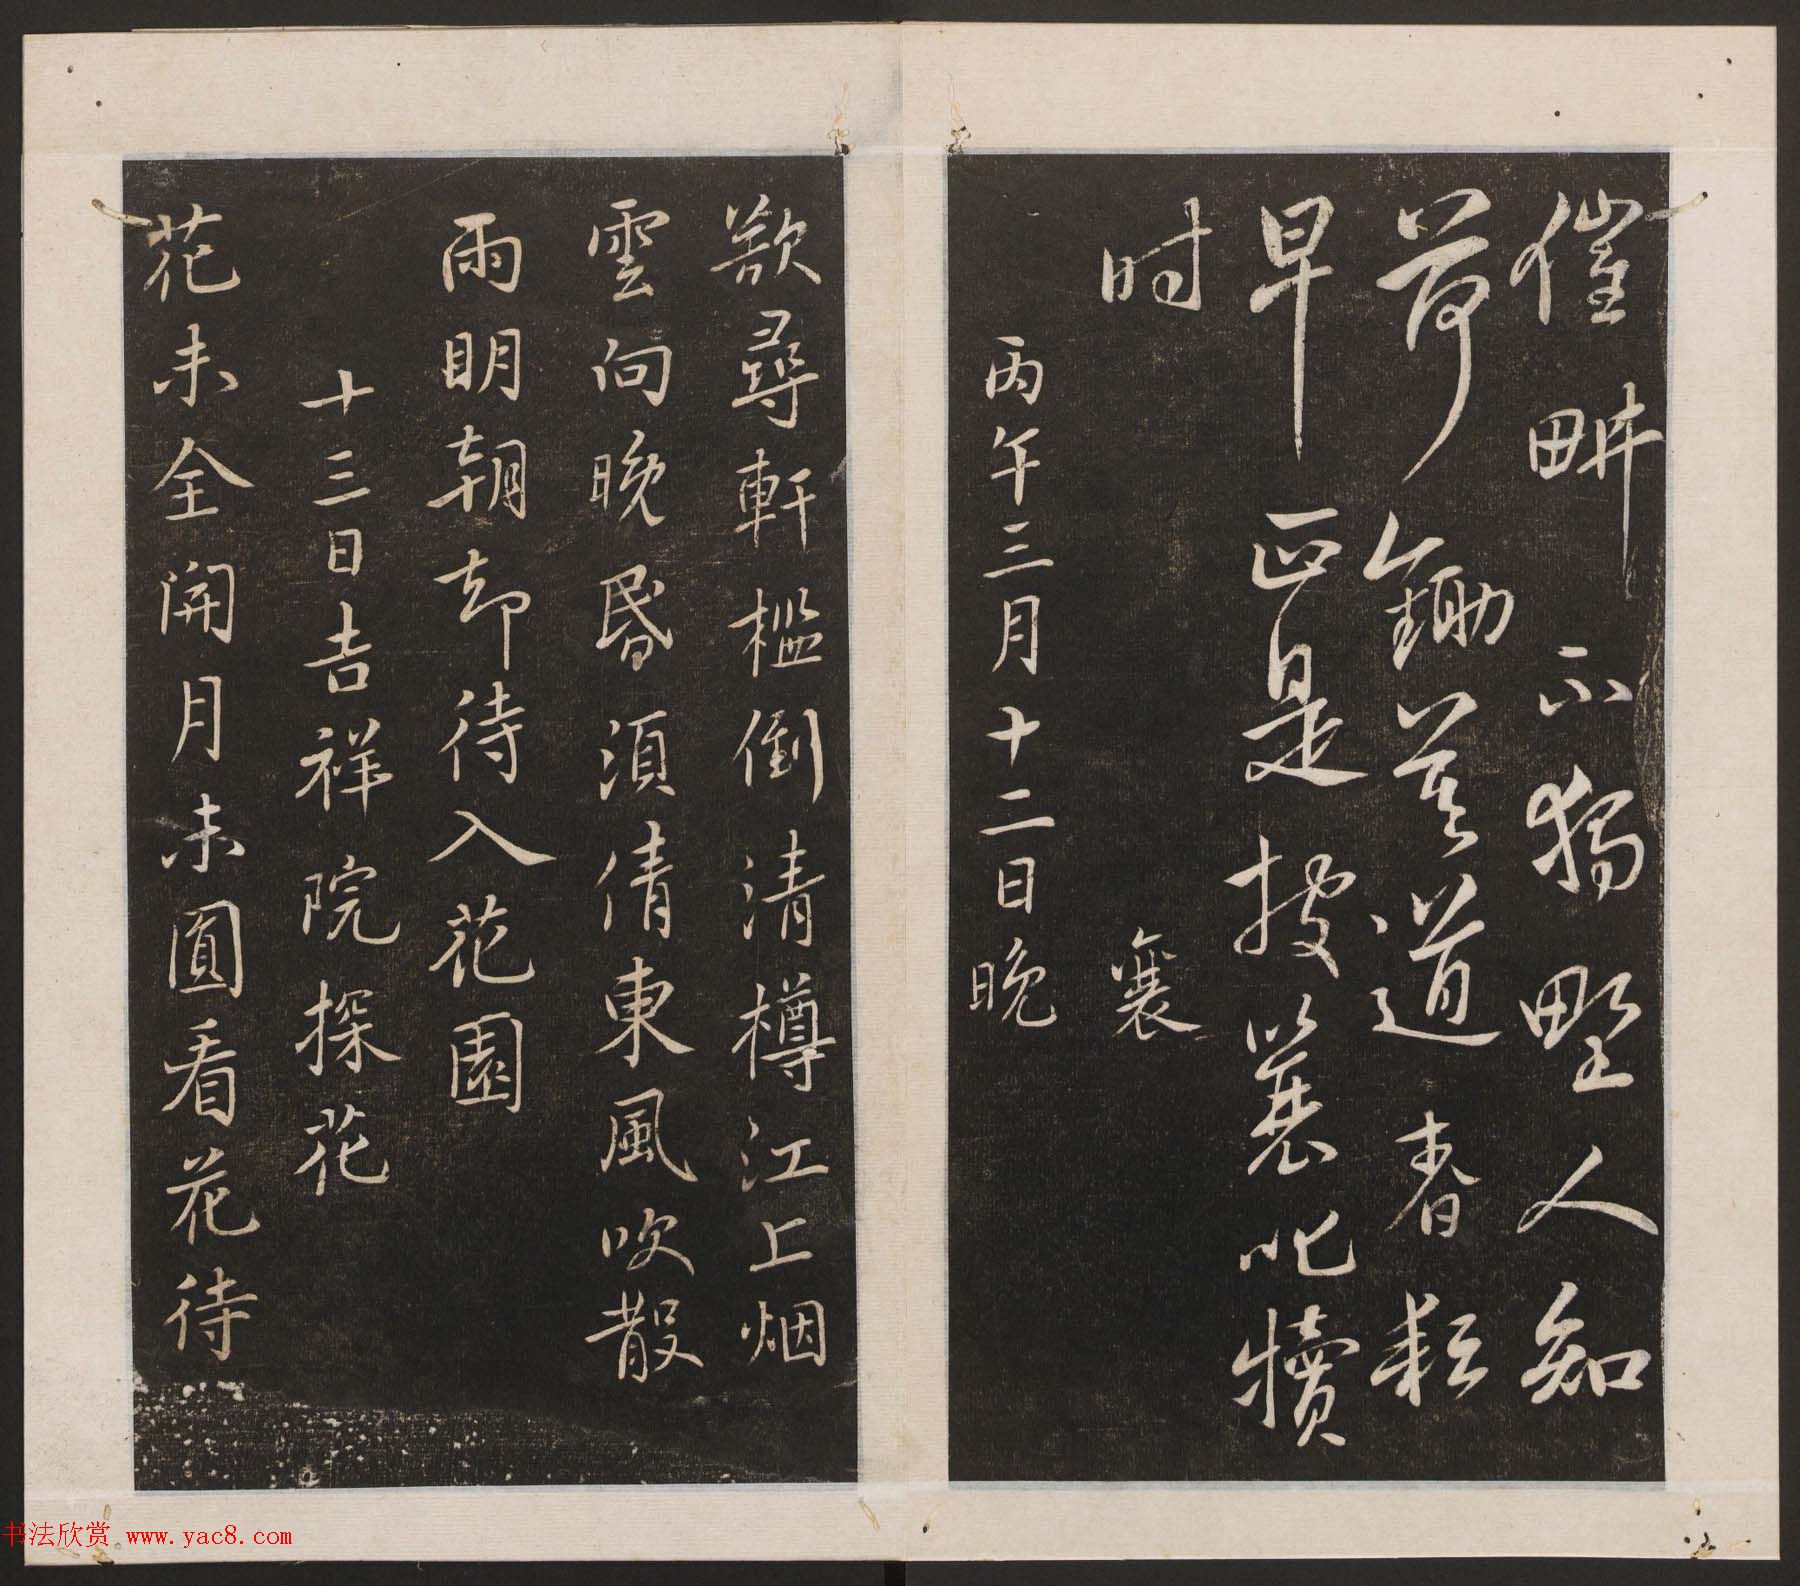 催畊不獨野人知
荷鋤莫道春耘
早正是披蓑叱犢
时 襄
丙午三月十二日晚
欲尋軒檻倒清樽江上烟
雲向晚昏須倩東風吹散
雨明朝却待入花園
十三日吉祥院探花
花未全開月未圓看花待
书法欣赏 www.yac8.com